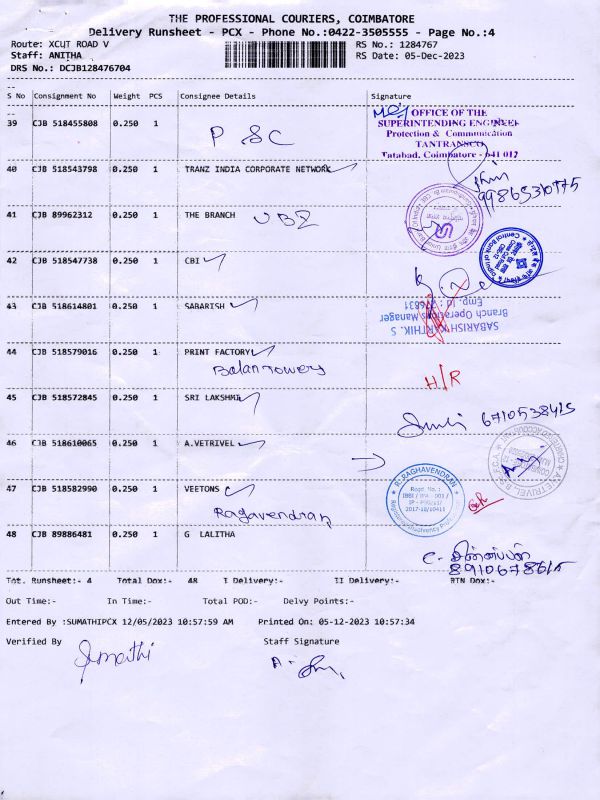 THE PROFESSIONAL COURIERS, COIMBATORE
Delivery Runsheet - PCX - Phone No.:0422-3505555 - Page No.:4
Route: XCUT ROAD V RS No.: 1284767
Staff: ANITHA RS Date: 05-Dec-2023
DRS No.: DCJB128476704
S No Consignment No Weight PCS Consignee Details Signature
39 CJB 518455808 0.250 1 P SC
OFFICE OF THE
SUPERINTENDING ENGINEER
Protection & Communication
TANTRANSCO
Tatabad, Coimbatore - 641 012
40 CJB 518543798 0.250 1 TRANZ INDIA CORPORATE NETWORK
41 CJB 89962312 0.250 1 THE BRANCH UBI
42 CJB 518547738 0.250 1 CBI
Central Bank of India
43 CJB 518614801 0.250 1 SABARISH
SABARISH KARTHIK. S
Branch Operations Manager
44 CJB 518579016 0.250 1 PRINT FACTORY
Balan Towers
H/R
45 CJB 518572845 0.250 1 SRI LAKSHMI
6710538415
46 CJB 518610065 0.250 1 A.VETRIVEL
47 CJB 518582990 0.250 1 VEETONS
Ragavendran
R. RAGHAVENDRAN
Regd. No. :
2017-18/10411
48 CJB 89886481 0.250 1 G LALITHA
8910678615
Tot. Runsheet:- 4 Total Dox:- 48 I Delivery:- II Delivery:- RTN Dox:-
Out Time:- In Time:- Total POD:- Delvy Points:-
Entered By :SUMATHIPCX 12/05/2023 10:57:59 AM Printed On: 05-12-2023 10:57:34
Verified By Staff Signature